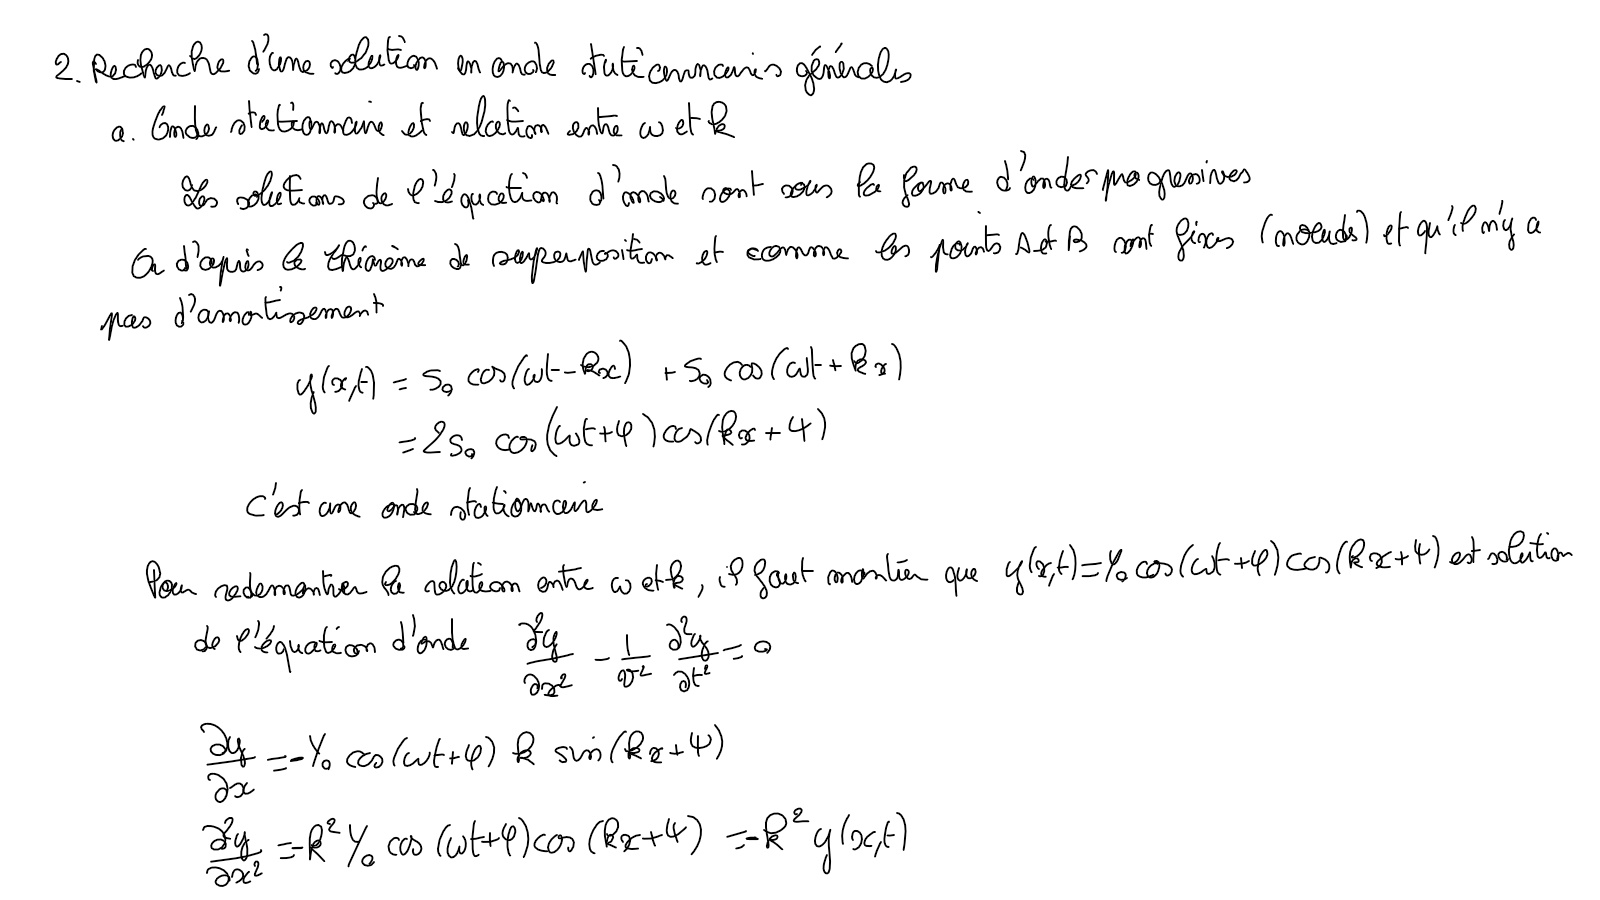 2. Recherche d'une solution en onde stationnaires générales
a. Onde stationnaire et relation entre ω et k
Les solutions de l'équation d'onde sont sous la forme d'ondes progressives
Or d'après le théorème de superposition et comme les points A et B sont fixes (noeuds) et qu'il n'y a
pas d'amortissement
y(x,t) = S₀ cos(ωt-kx) + S₀ cos(ωt+kx)
= 2S₀ cos(ωt+φ) cos(kx+ψ)
C'est une onde stationnaire
Pour redemontrer la relation entre ω et k, il faut montrer que y(x,t) = Y₀ cos(ωt+φ) cos(kx+ψ) est solution
de l'équation d'onde ∂²y/∂x² - 1/v² ∂²y/∂t² = 0
∂y/∂x = -Y₀ cos(ωt+φ) k sin(kx+ψ)
∂²y/∂x² = -k² Y₀ cos(ωt+φ) cos(kx+ψ) = -k² y(x,t)